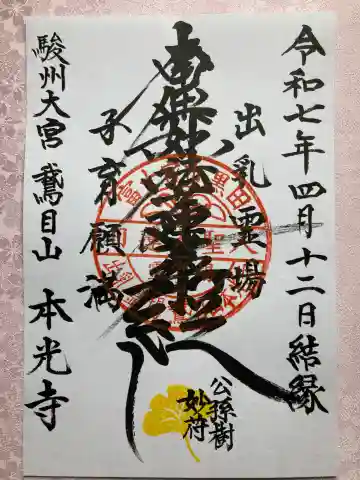 令和七年四月十二日結縁
出乳霊場
南無妙法蓮華経
子育願満
駿州大宮 鵞目山 本光寺
公孫樹
妙符